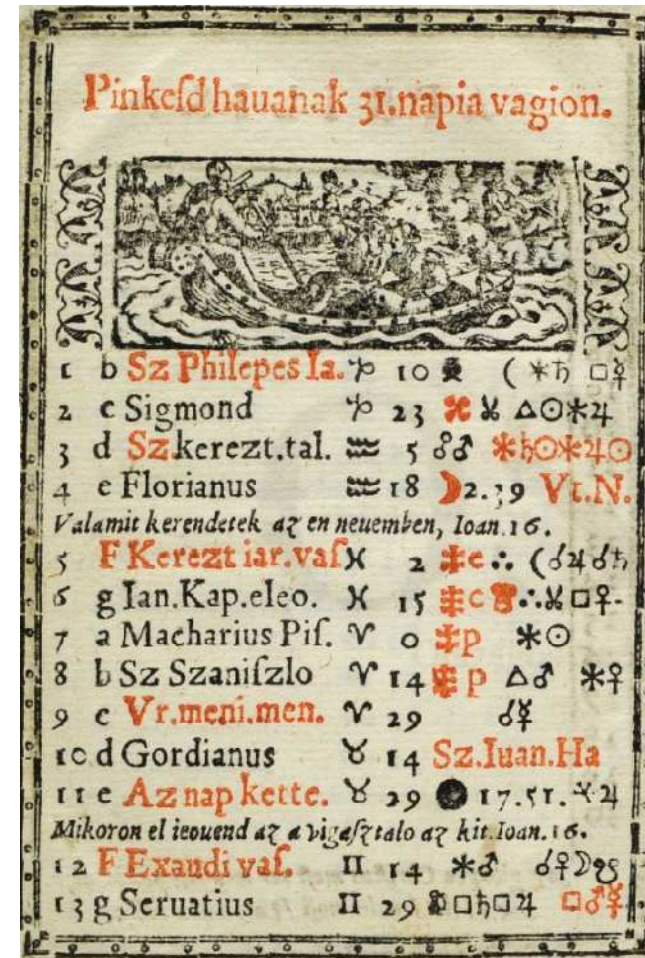 Pinkeſd hauanak 31.napia vagion.
1 b Sz Philepes Ia. ♑ 10 ( ⚹♄ □☿
2 c Sigmond ♑ 23 △☉⚹♃
3 d Sz.kerezt.tal. ♒ 5 ☍♂ ⚹♄☉⚹♃☉
4 e Florianus ♒ 18 ☽2.39 Vt.N.
Valamit kerendetek az en neuemben, Ioan.16.
5 F Kerezt iar.vaſ ♓ 2 e ∴ (☌♃☌♄
6 g Ian.Kap.eleo. ♓ 15 c ∴ □♀
7 a Macharius Piſ. ♈ 0 p ⚹☉
8 b Sz Szaniſzlo ♈ 14 p △♂ ⚹♀
9 c Vr.meni.men. ♈ 29 ☌☿
10 d Gordianus ♉ 14 Sz.Iuan.Ha
11 e Az nap kette. ♉ 29 ● 17.51. ♃
Mikoron el ieouend az a vigaſztalo az kit.Ioan.16.
12 F Exaudi vaſ. ♊ 14 ⚹♂ ☌♀☽☋
13 g Seruatius ♊ 29 □♄□♃ □♂☿